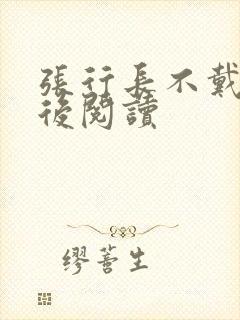 張行長不戴
後閱讀
繆蓍生